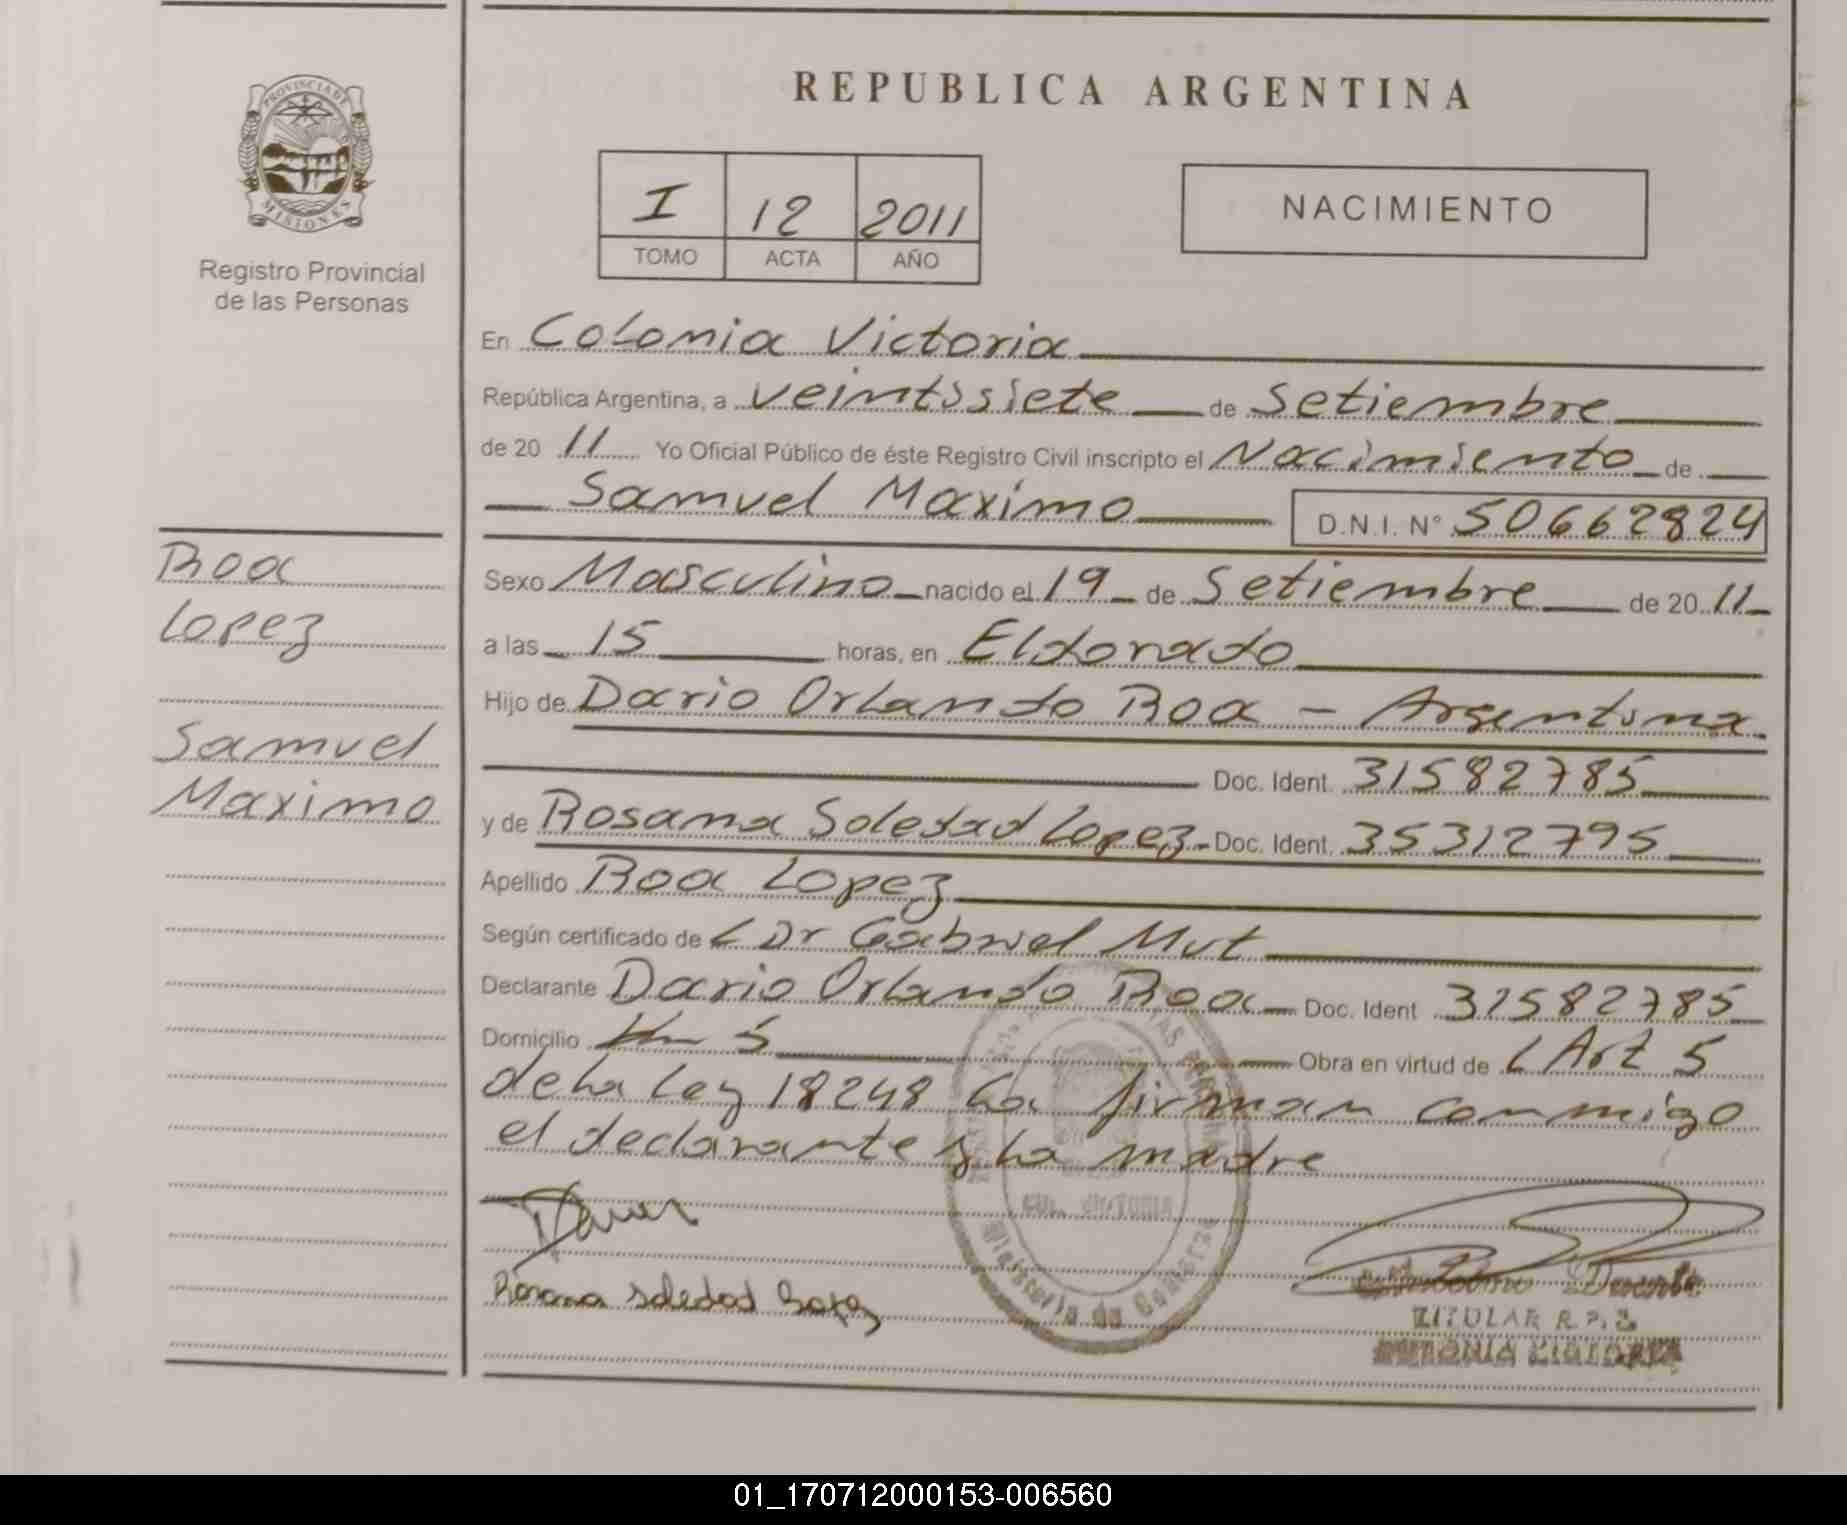 REPUBLICA ARGENTINA
PROVINCIA DE
MISIONES
Registro Provincial
de las Personas
I 12 2011
TOMO ACTA AÑO
NACIMIENTO
En Colonia Victoria
República Argentina, a veintisiete de Setiembre
de 20 11 Yo Oficial Público de éste Registro Civil inscripto el Nacimiento de
Samuel Maximo D.N.I. N° 50662824
Roa
Lopez
Samuel
Maximo
Sexo Masculino nacido el 19 de Setiembre de 20 11
a las 15 horas, en Eldorado
Hijo de Dario Orlando Roa - Argentina
Doc. Ident. 31582785
y de Rosana Soledad Lopez Doc. Ident. 35312795
Apellido Roa Lopez
Según certificado de L Dr Gabriel Mut
Declarante Dario Orlando Roa Doc. Ident 31582785
Domicilio Km 5 Obra en virtud de L Art 5
de la Ley 18248 La firman conmigo
el declarante y la madre
Rosana Soledad
COL. VICTORIA
Ministerio de
Duarte
TITULAR R.P.
01_170712000153-006560